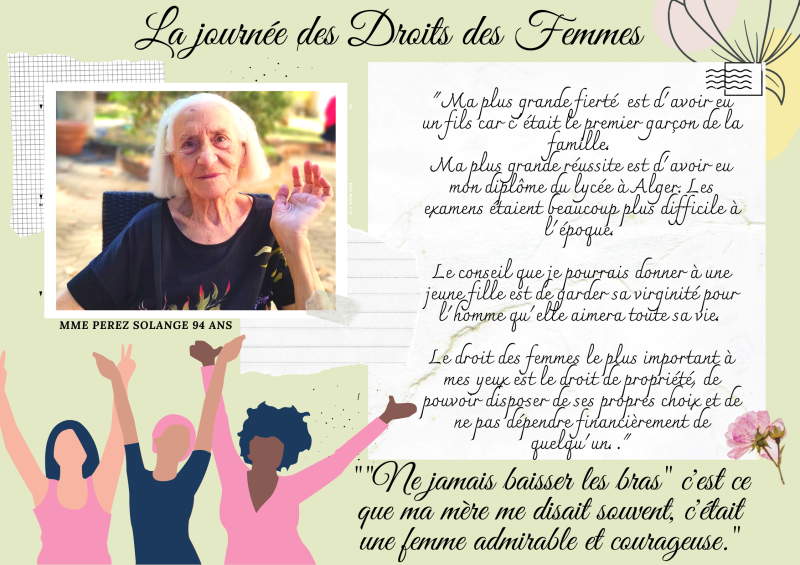 La journée des Droits des Femmes
"Ma plus grande fierté est d'avoir eu
un fils car c'était le premier garçon de la
famille.
Ma plus grande réussite est d'avoir eu
mon diplôme du lycée à Alger. Les
examens étaient beaucoup plus difficile à
l'époque.
Le conseil que je pourrais donner à une
jeune fille est de garder sa virginité pour
l'homme qu'elle aimera toute sa vie.
Le droit des femmes le plus important à
mes yeux est le droit de propriété, de
pouvoir disposer de ses propres choix et de
ne pas dépendre financièrement de
quelqu'un. ."
MME PEREZ SOLANGE 94 ANS
""Ne jamais baisser les bras" c'est ce
que ma mère me disait souvent, c'était
une femme admirable et courageuse."